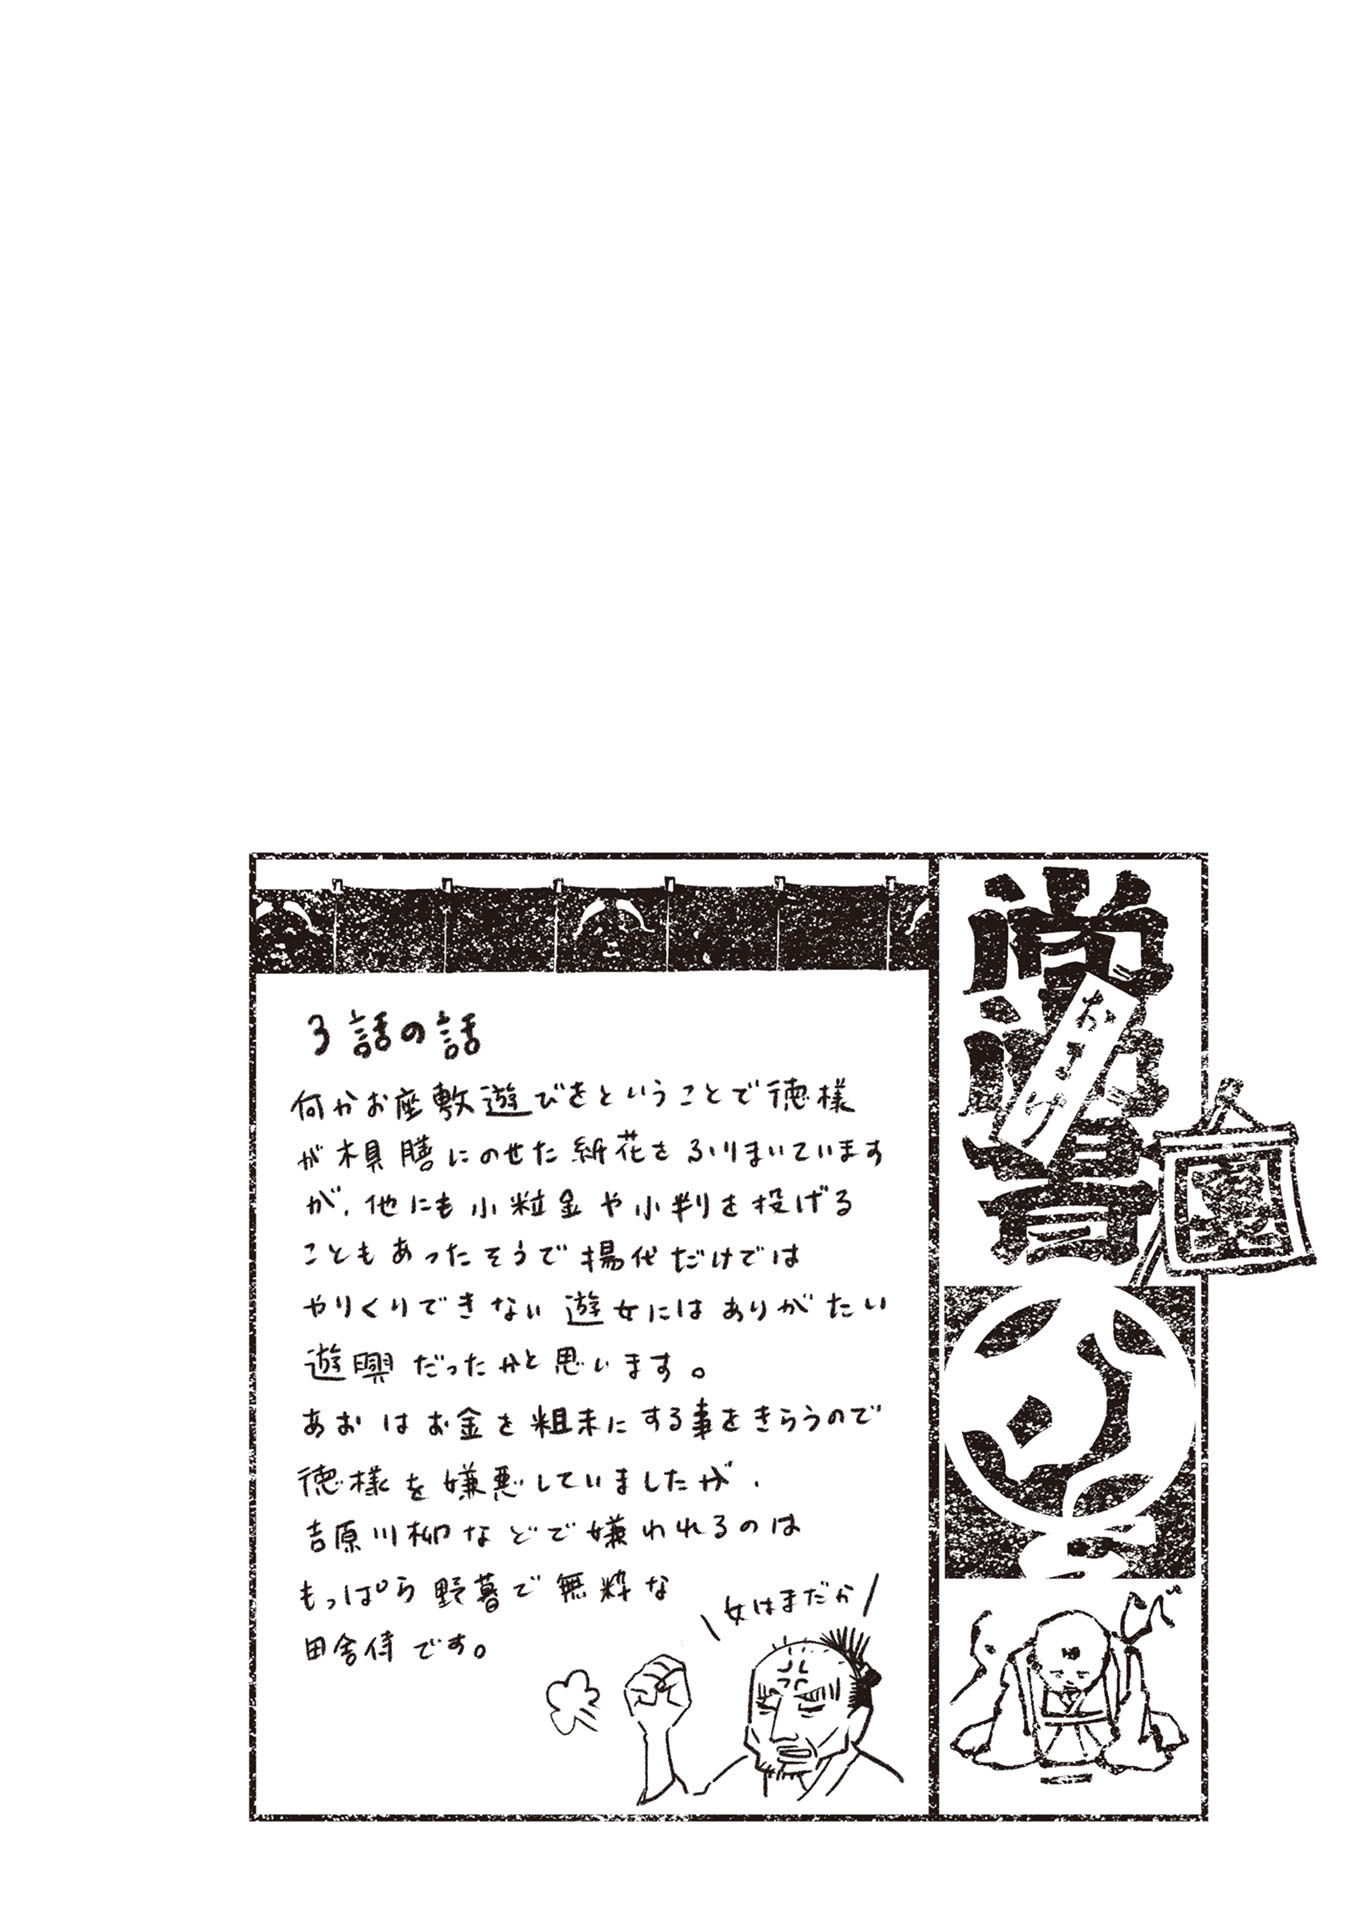 3話の話
何かお座敷遊びをということで徳様
が棋膳にのせた紙花をふりまいています
が、他にも小粒金や小判を投げる
こともあったそうで揚代だけでは
やりくりできない遊女にはありがたい
遊興だったかと思います。
あおはお金を粗末にする事をきらうので
徳様を嫌悪していましたが、
吉原川柳などで嫌われるのは
もっぱら野暮で無粋な
田舎侍です。
女はまだか
おまけ